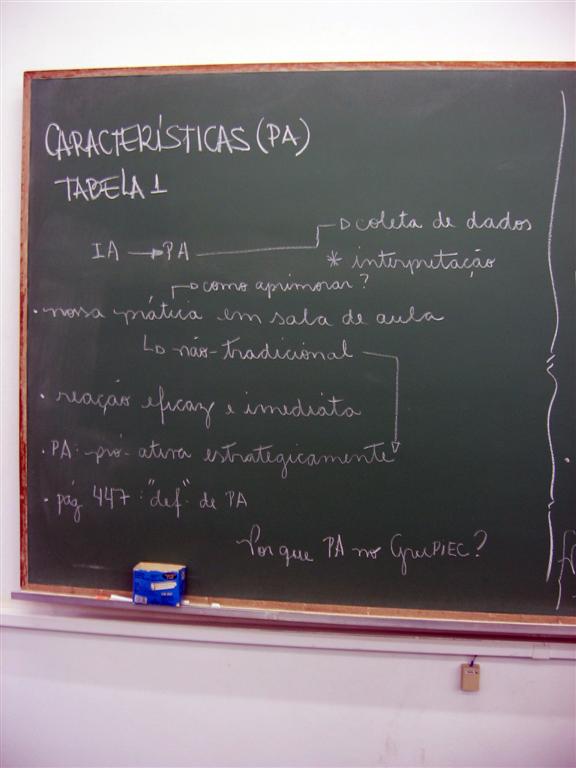 CARACTERÍSTICAS (PA)
TABELA 1
IA → PA → coleta de dados
* interpretação
→ como aprimorar?
• nossa prática em sala de aula
→ não-tradicional
• reação eficaz e imediáta
• PA: pró-ativa estrategicamente
• pág 447: "def" de PA
Por que PA no GruPIEC?